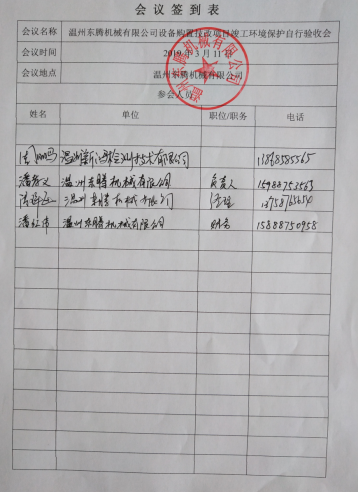 会议签到表
会议名称 温州东腾机械有限公司设备购置技改项目竣工环境保护自行验收会
会议时间 2019年3月11日
会议地点 温州东腾机械有限公司
参会人员
姓名 单位 职位/职务 电话
温州新 有限公司 13868585565
潘 温州东腾机械有限公司 负责人 15988753563
温州东腾机械有限公司 经理 13758765654
潘 温州东腾机械有限公司 财务 15888750958
温州东腾机械有限公司